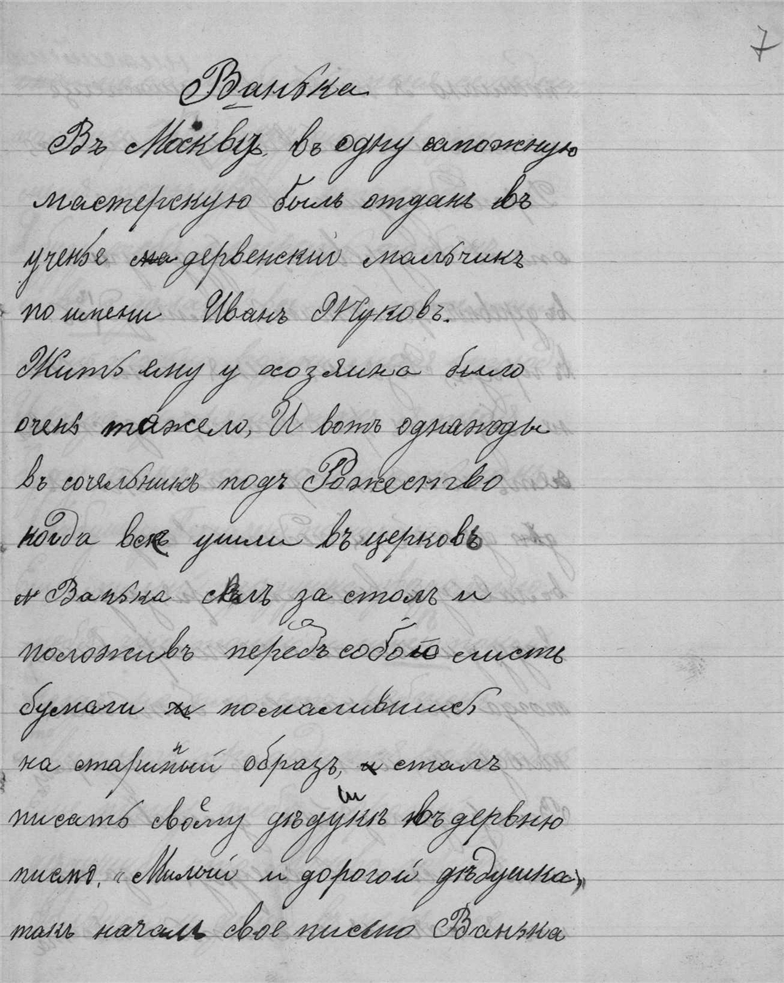 7
Ванька
Въ Москвѣ, въ одну сапожную
мастерскую былъ отданъ въ
ученье дервенскій мальчикъ
по имени Иванъ Жуковъ.
Жить ему у хозяина было
очень тяжело, И вотъ однажды
въ сочельникъ подъ Рожество
когда всѣ ушли въ церковь
и Ванька сѣлъ за столъ и
положивъ передъ собою листъ
бумаги помалившись
на стариный образъ, сталъ
писать своему дѣдушкѣ въ дервню
писмо. „Милый и дорогой дѣдушка„
такъ началъ свое письмо Ванька